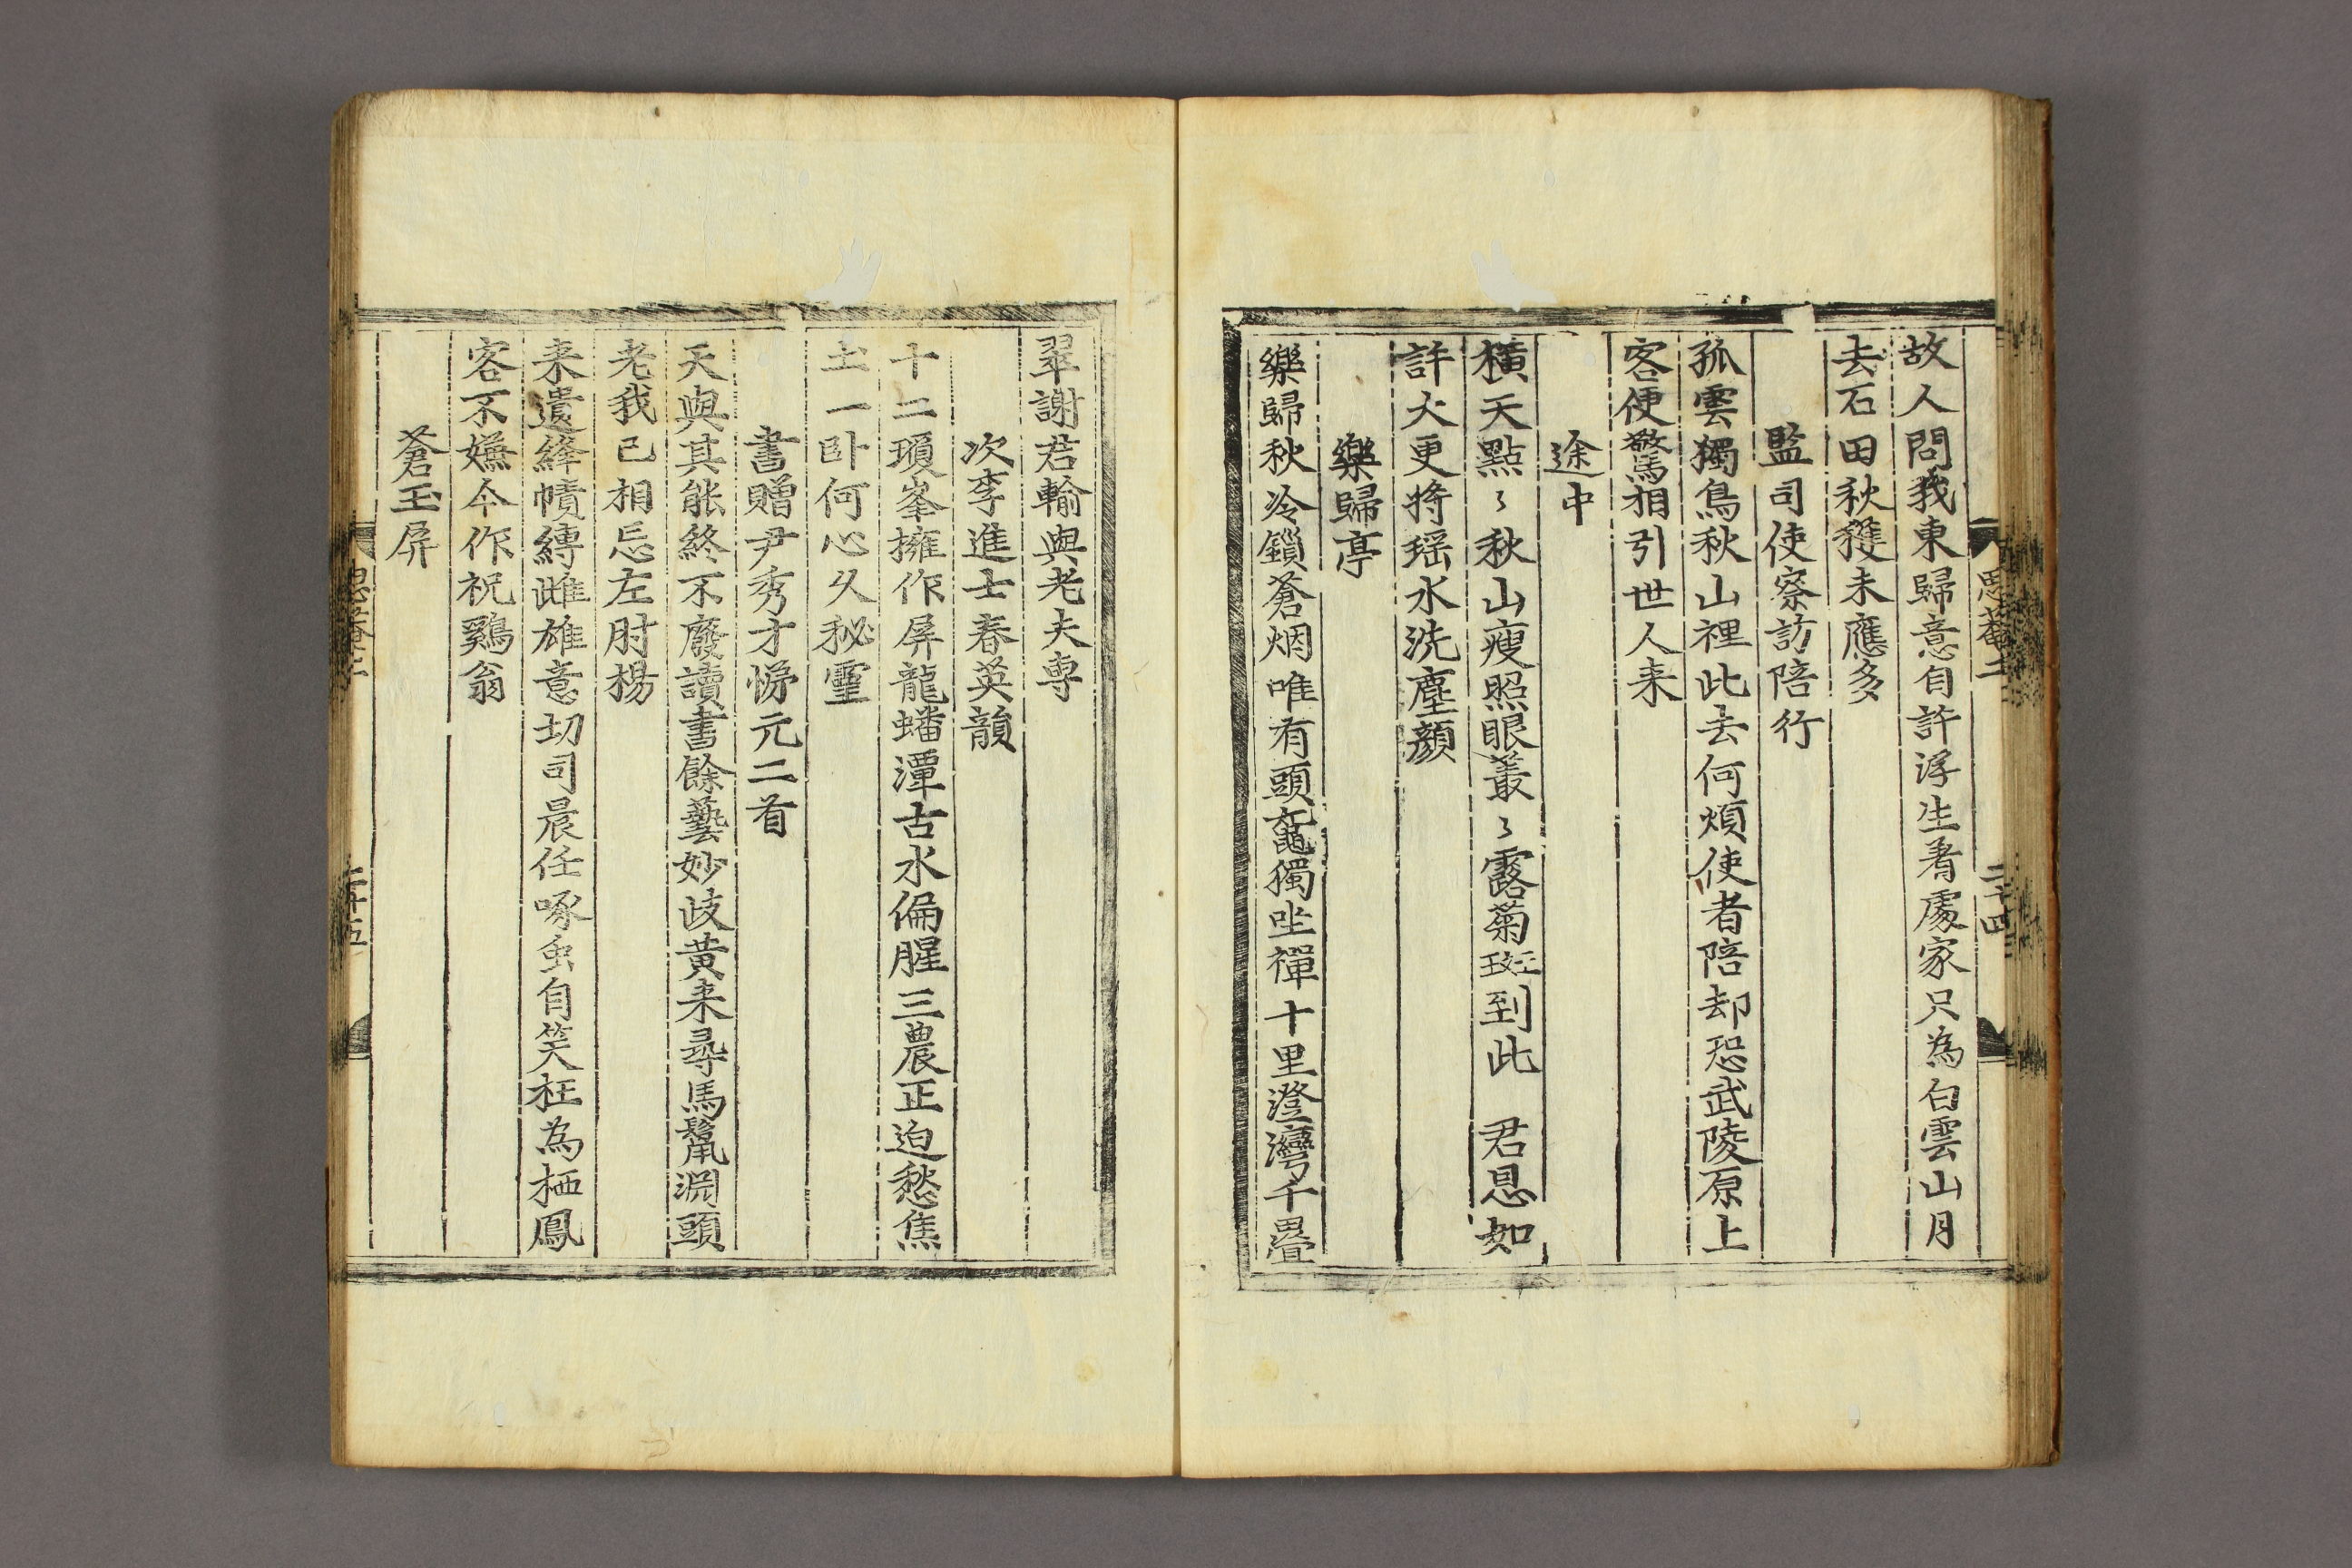 思菴二　二十四
故人問我東歸意自許浮生着處家只為白雲山月
去石田秋穫未應多
監司使察訪陪行
孤雲獨鳥秋山裡此去何煩使者陪却恐武陵原上
客便驚相引世人来
途中
橫天點〻秋山瘦照眼叢〻露菊斑到此　君恩如
許大更將瑶水洗塵顔
樂歸亭
樂歸秋冷鎖蒼烟唯有頭龜獨坐禪十里澄灣千疊
翠謝君輸與老夫專
次李進士春英韻
十二瓊峯擁作屏龍蟠潭古水偏腥三農正迫愁焦
土一卧何心久秘靈
書贈尹秀才悌元二首
天與其能終不廢讀書餘藝妙歧黃来尋馬鬣淵頭
老我已相忘左肘楊
来遺絳幘縛雌雄意切司晨任啄虫自笑枉為栖鳳
客不嫌今作祝鷄翁
蒼玉屏
思菴二　二十五